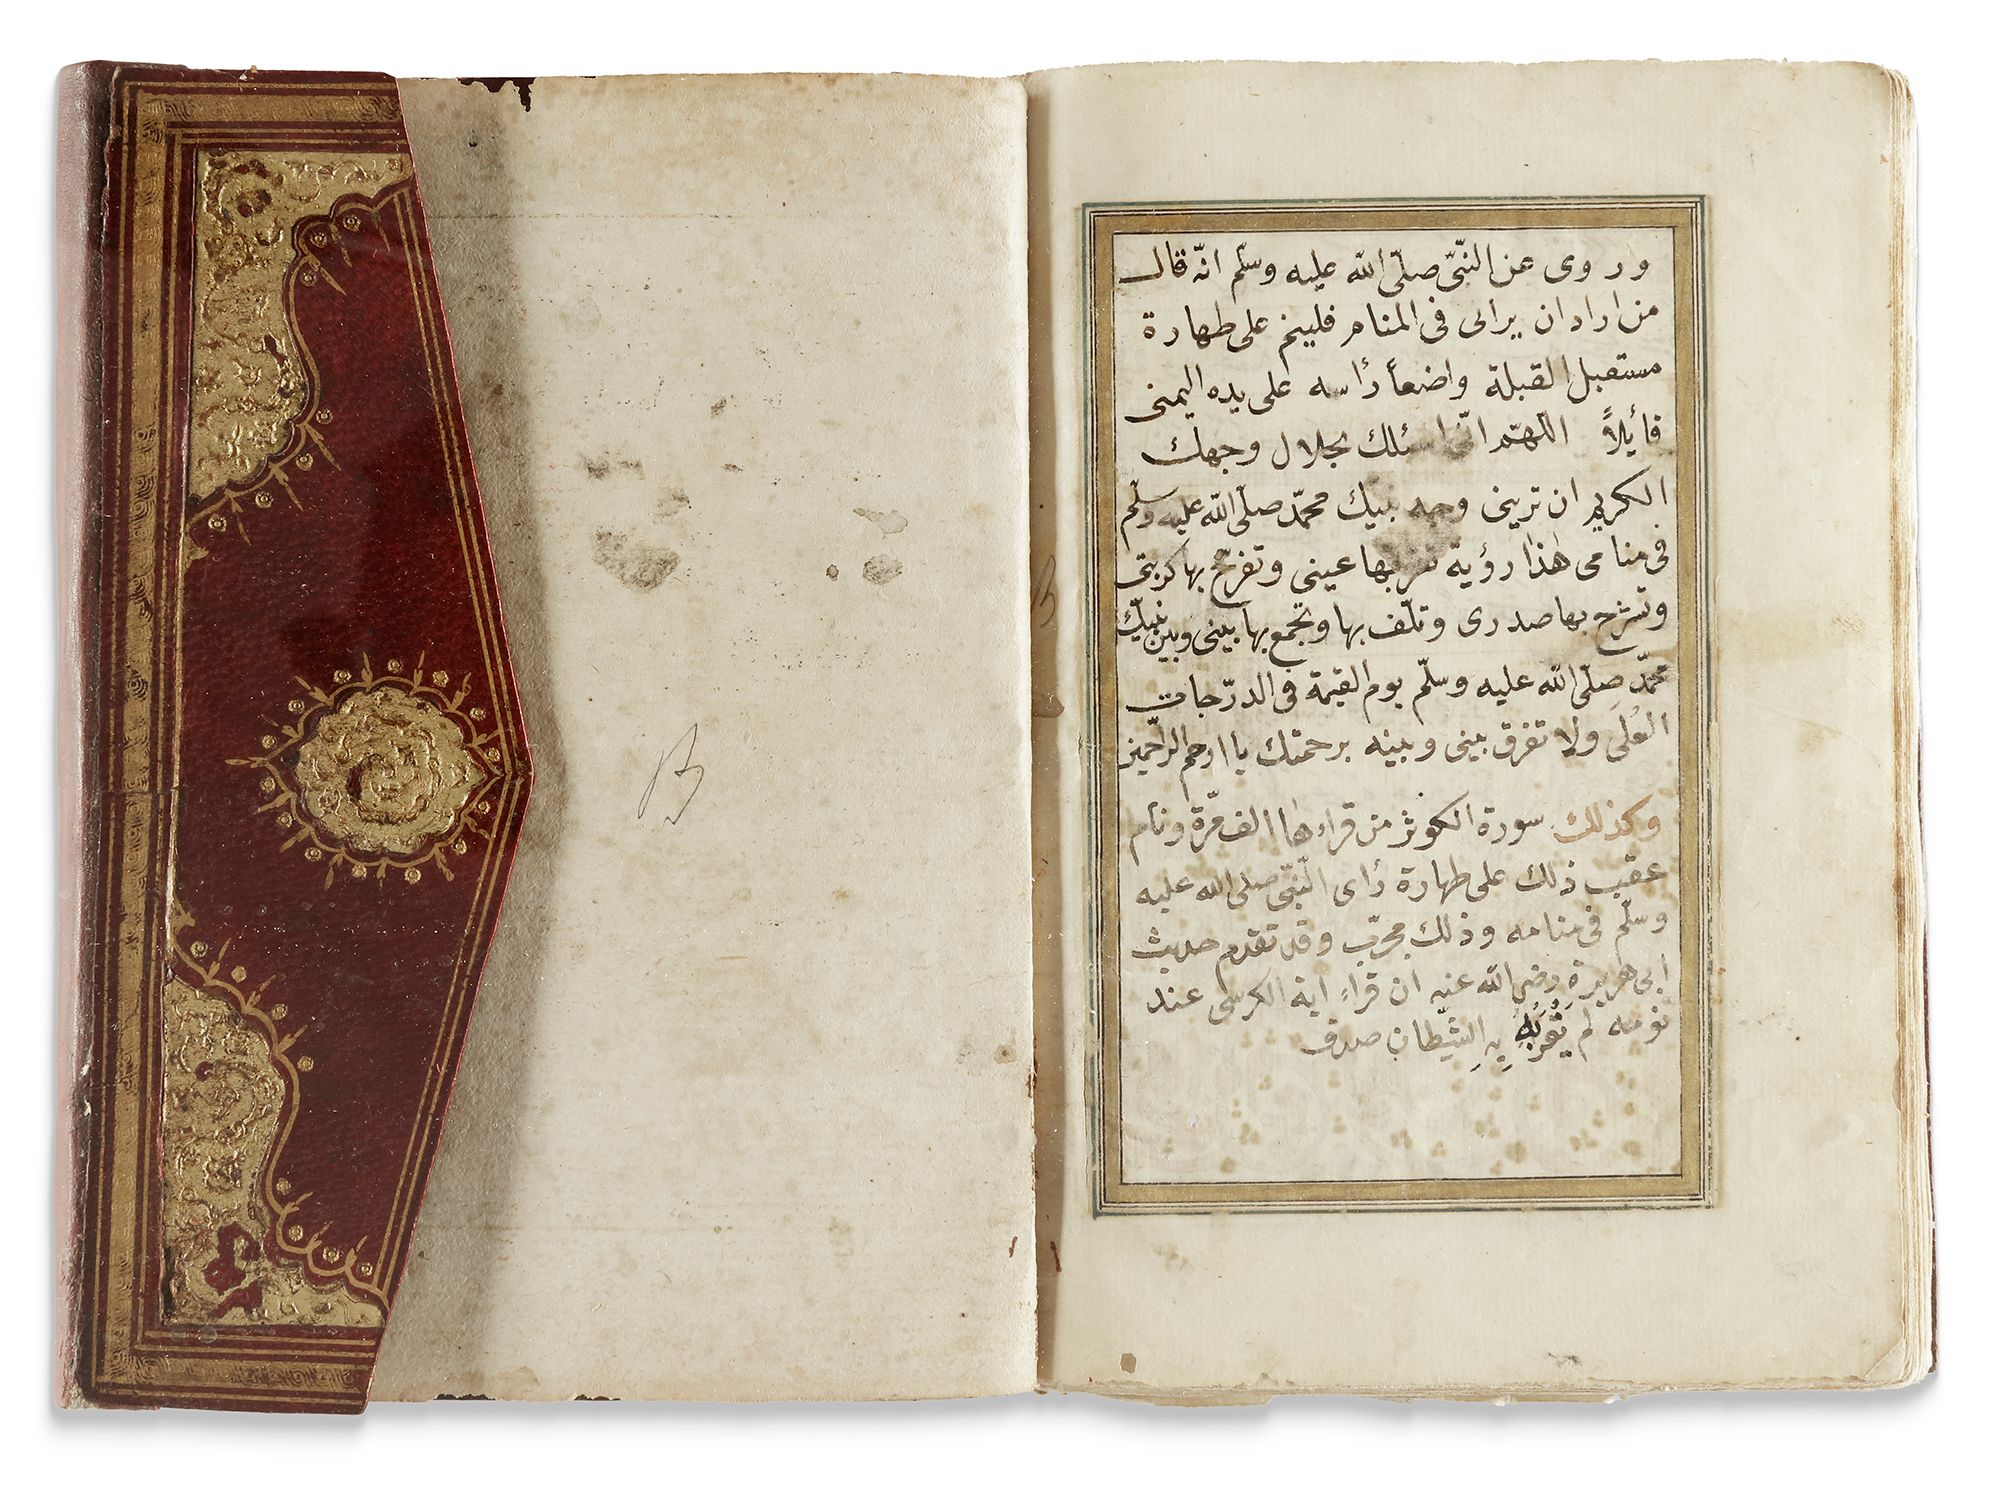 وروى عن النبىّ صلّى الله عليه وسلّم انّه قال
من اراد ان يرانى فى المنام فلينم على طهارة
مستقبل القبلة واضعاً رأسه على يده اليمنى
قائيلاً اللهمّ انّى اسئلك بجلال وجهك
الكريم ان ترينى وجه نبيك محمّد صلّى الله عليه وسلّم
فى منامى هذا رؤية تقر بها عينى وتفرّج بها كربتى
وتشرح بها صدرى وتلّف بها وتجمع بها بينى وبين نبيّك
محمّد صلّى الله عليه وسلّم يوم القيمة فى الدرّجات
العُلَى ولا تفرق بينى وبينه برحمتك يا ارحم الرّاحمين
وكذلك سورة الكوثر من قراءها الف مرّة ونام
عقيب ذلك على طهارة رأى النّبىّ صلى الله عليه
وسلّم فى منامه وذلك مجرّب وقد تقدم حديث
ابى هريرة رضى الله عنه ان قراء اية الكرسى عند
نومه لم يَقْرَبُهُ الشّيطان صدق
B